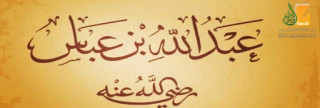 عَبْدُ اللهِ بْنِ عَبَّاسٍ
رَضِيَ اللهُ عَنْهُ